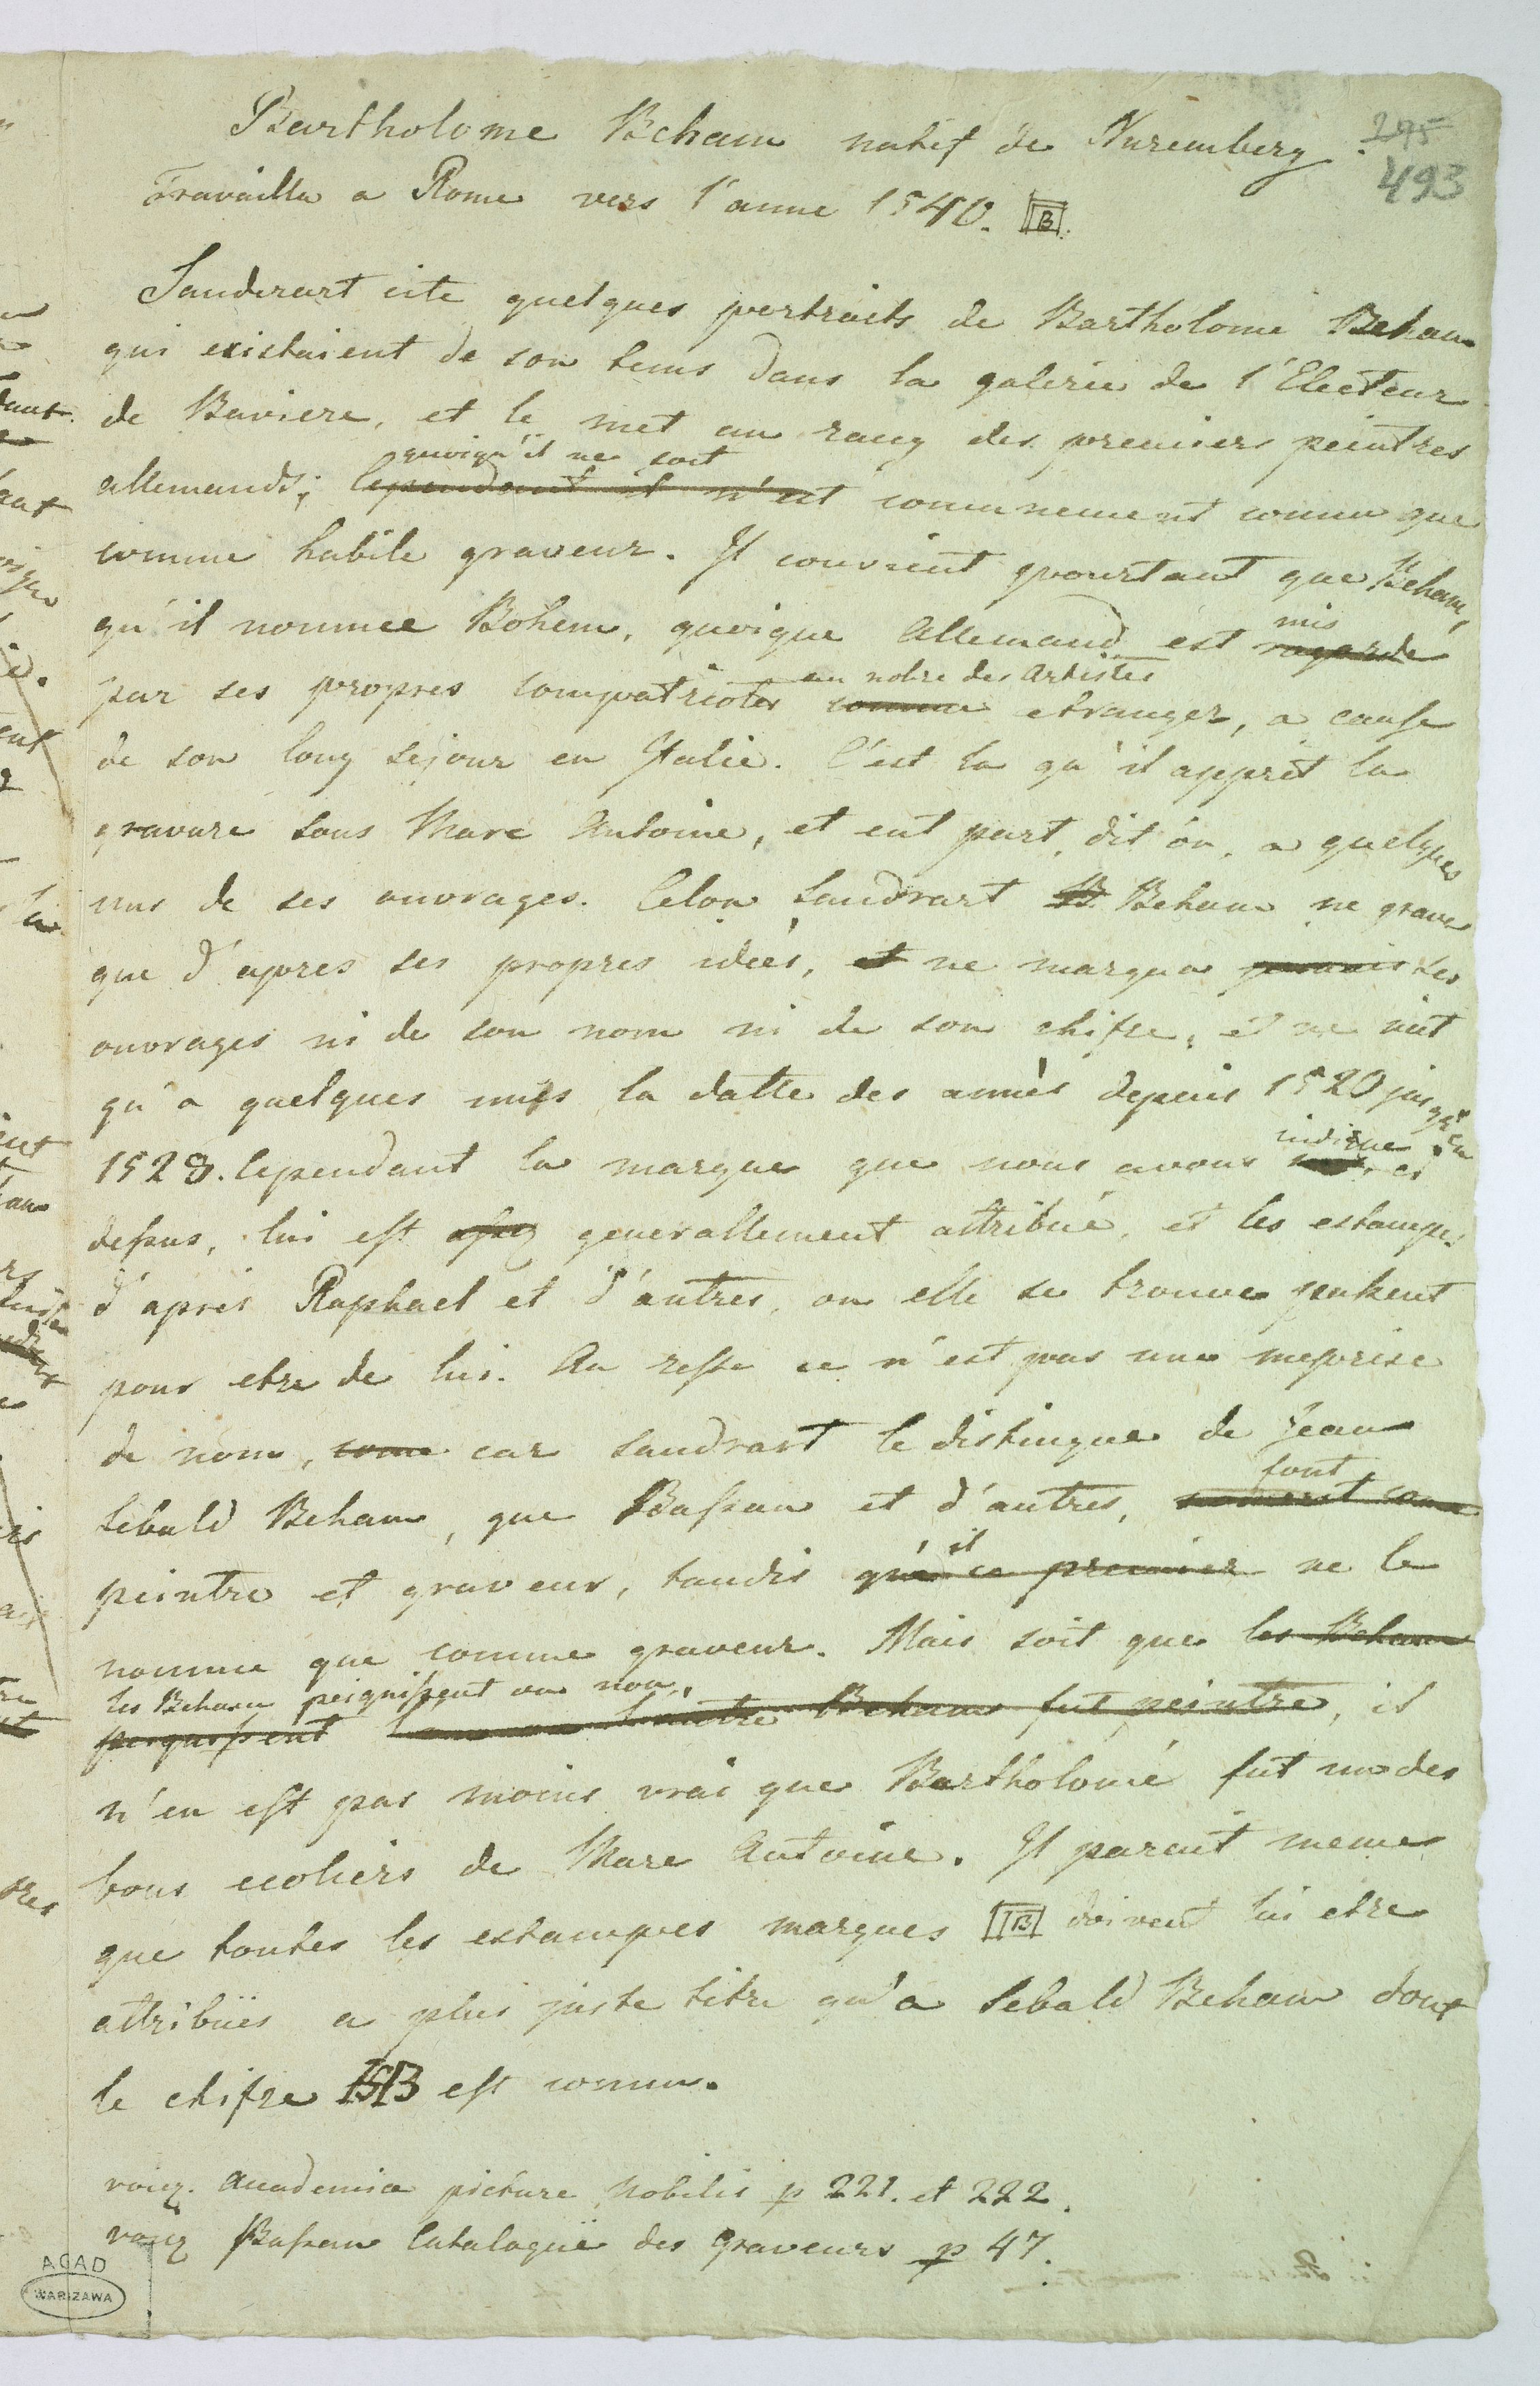 Bartholome Beham natif de Nuremberg.
295
493
Travailla a Rome vers l'anne 1540. B.
Sanderart cite quelques portraits de Bartholome Beham
qui existaient de son tems dans la galerie de l'Electeur
de Baviere, et le met au rang des premiers peintres
quoiqu'il ne soit
allemands; Cependant il n'est communement connu que
comme habile graveur. Il convient pourtant que Beham,
mis
qu'il nomme Bohem, quoique Allemand est regardé
au nobre des Artistes
par ses propres compatriotes comme etranger, a cause
de son long sejour en Italie. C'est la qu'il apprit la
gravure sous Marc Antoine, et eut part, dit on, a quelques
uns de ses ouvrages. Celon Sandrart B. Beham ne grava
que d'apres ses propres idées, et ne marqua jamais ses
ouvrages ni de son nom ni de son chifre, et ne mit
qu'a quelques uns la datte des annès depuis 1520 jusqu'en
indique
1528. Cependant la marque que nous avons ci
dessus, lui est assez generallement attribué, et les estampes
d'après Raphael et d'autres, ou elle se trouve passent
pour etre de lui. Au reste ce n'est pas une meprise
de nom, come car Sandrart le distingue de Jean
font
Sebald Beham, que Bassan et d'autres, nomment come
il
peintre et graveur, tandis que ce premier ne le
nomme que comme graveur. Mais soit que les Beham
les Beham peignissent ou non,
peignissent l'un ou l'autre Beham fut peintre, il
n'en est pas moins vrai que Bartholomé fut un des
bons ecoliers de Marc Antoine. Il parait meme
que toutes les estampes marques B doivent lui etre
attribüés a plus juste titre qu'a Sebald Beham dont
le chifre HSB est connu.
voiez. Academia picture nobilis p 221. et 222.
voiez Bassan Catalogüe des Graveurs p 47.
ACAD
WARSZAWA